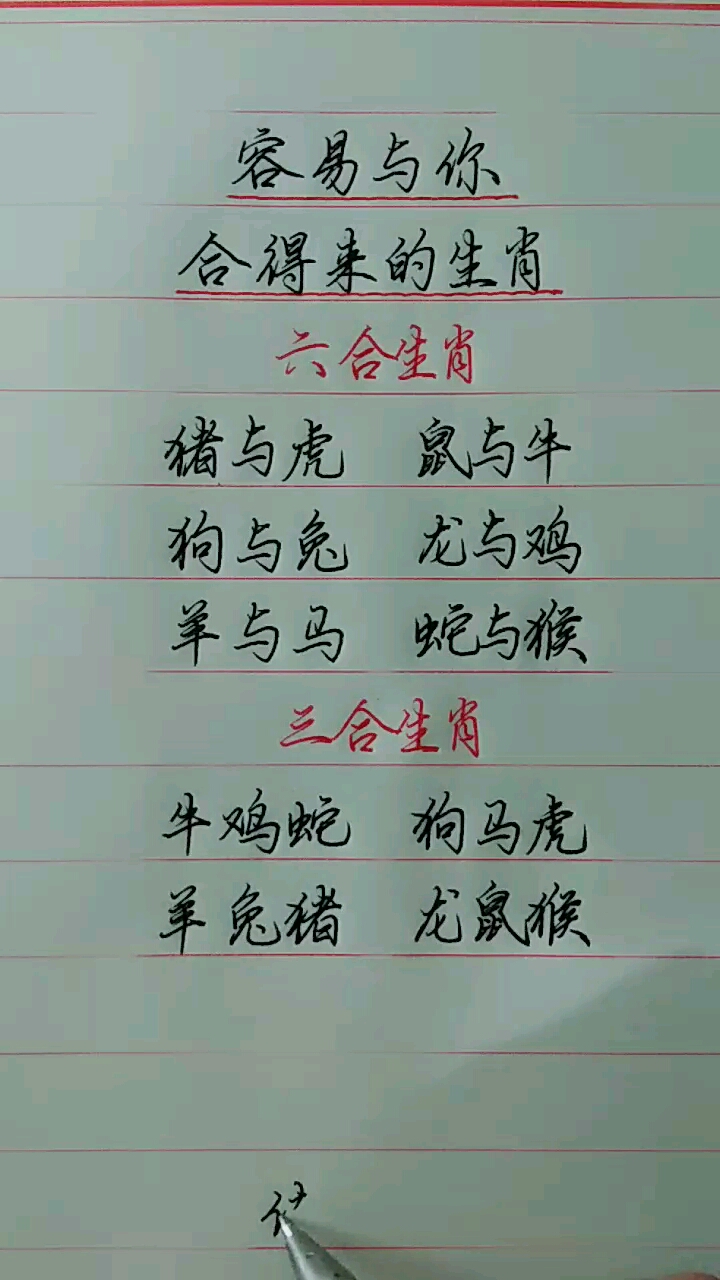 容易与你
合得来的生肖
六合生肖
猪与虎 鼠与牛
狗与兔 龙与鸡
羊与马 蛇与猴
三合生肖
牛鸡蛇 狗马虎
羊兔猪 龙鼠猴